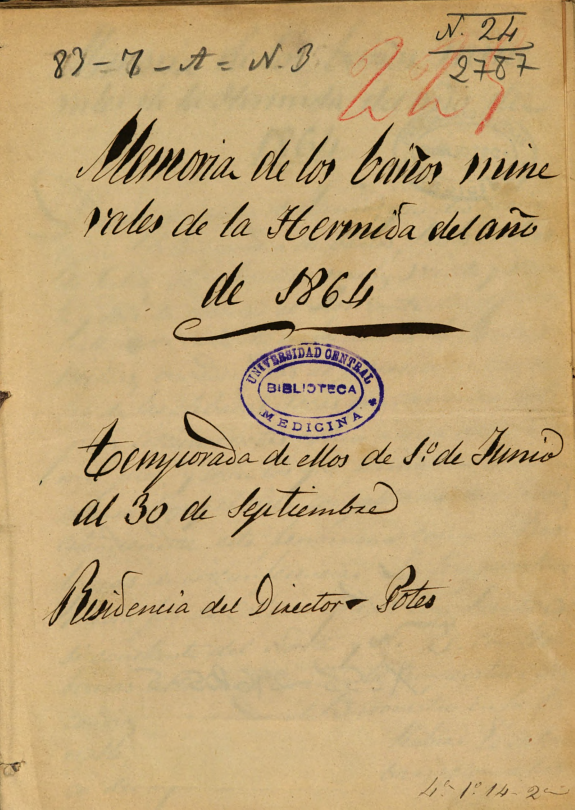 83-7-A=N.3
N. 24
2787
Memoria de los baños mine
rales de la Hermida del año
de 1864
UNIVERSIDAD CENTRAL
BIBLIOTECA
MEDICINA
temporada de ellos de 1º de Junio
al 30 de Septiembre
Residencia del Director - Potes